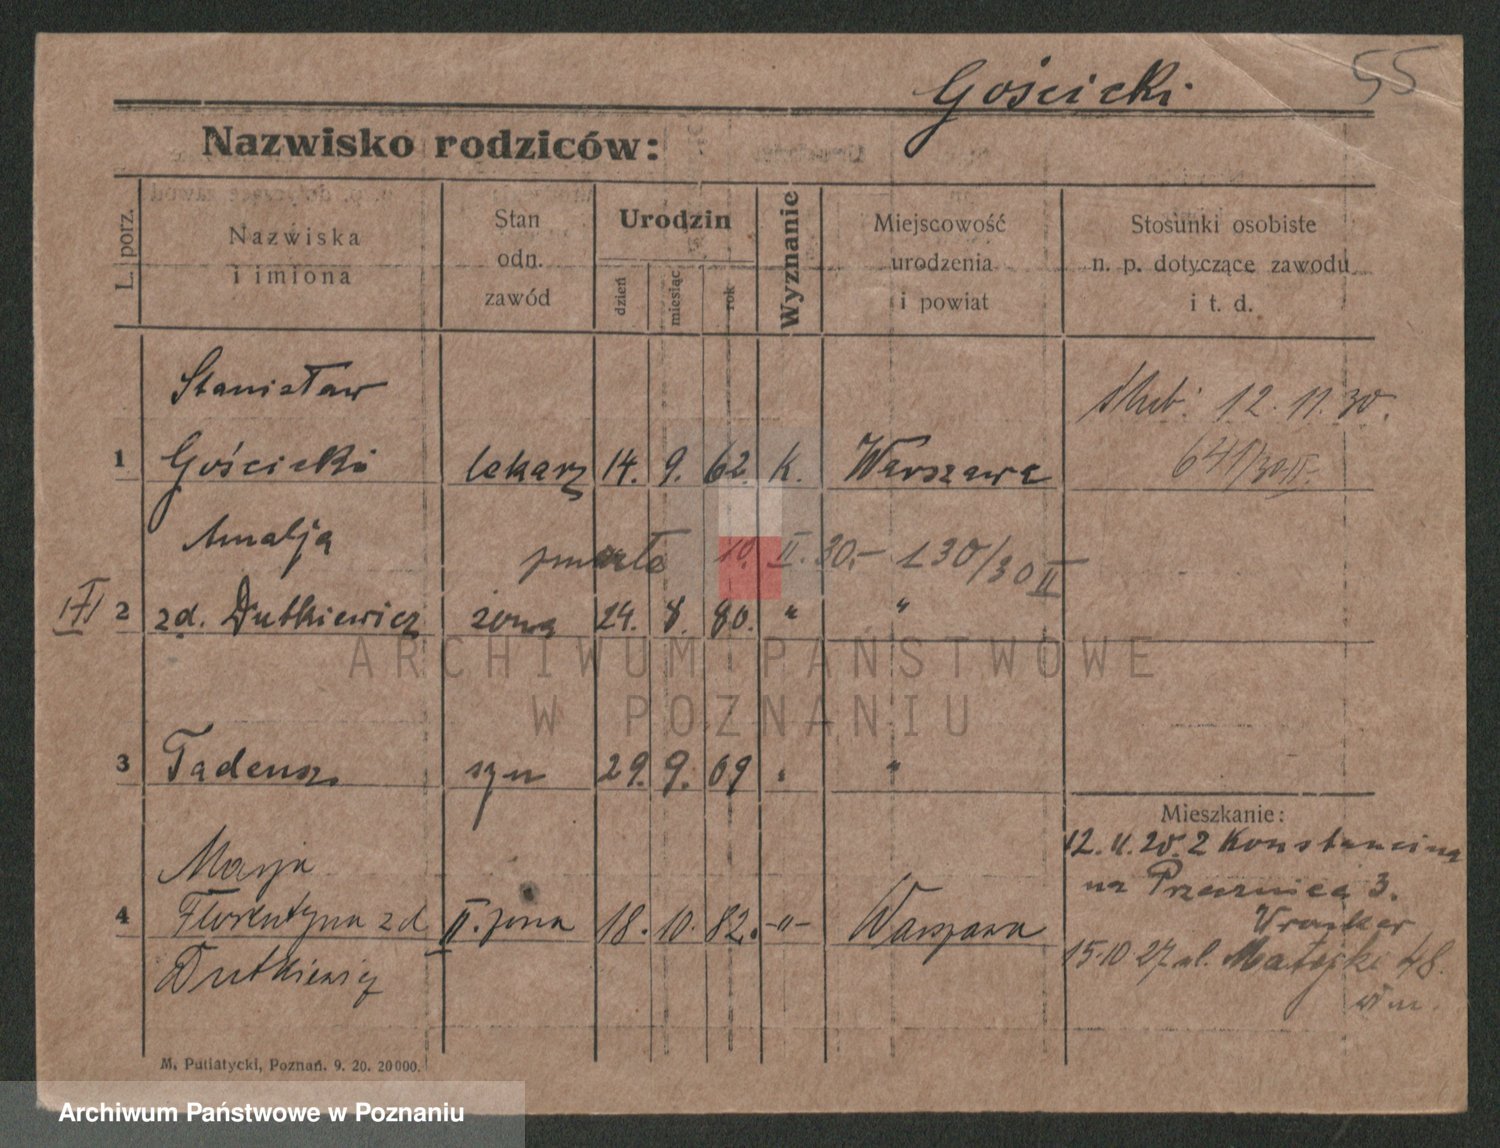 Gościcki
55
Nazwisko rodziców:
L. porz.
Nazwiska
i imiona
Stan
odn.
zawód
Urodzin
dzień
miesiąc
rok
Wyznanie
Miejscowość
urodzenia
i powiat
Stosunki osobiste
n. p. dotyczące zawodu
i t. d.
Stanisław
ślub: 12.11.30.
1 Gościcki lekarz 14. 9. 62. k. Warszawa
641/30 II.
Amalja
zmarła 10. II. 30.- 130/30 II
2 zd. Dutkiewicz żona 24. 8. 80. " "
3 Tadeusz syn 29. 9. 09 " "
Mieszkanie:
12.11.20. z Konstancina
Marja
na Przecznica 3.
4 Florentyna zd II. żona 18. 10. 82. -"- Warszawa
15.10.27 ul. Matejki 48.
Dutkiewicz
M. Putiatycki, Poznań. 9. 20. 20000.
ARCHIWUM PAŃSTWOWE
W POZNANIU
Archiwum Państwowe w Poznaniu